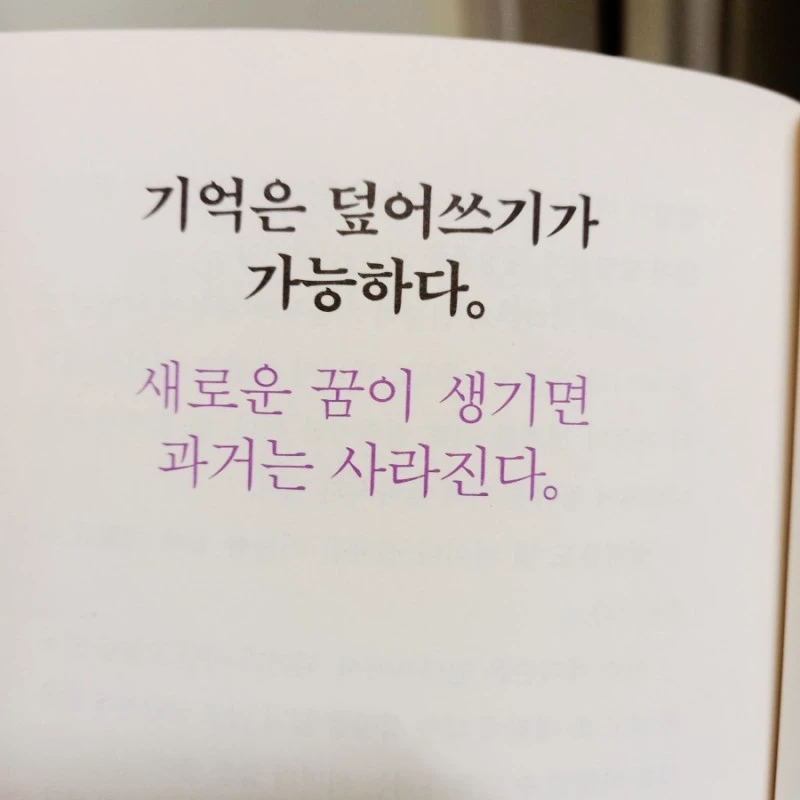 기억은 덮어쓰기가
가능하다。
새로운 꿈이 생기면
과거는 사라진다。